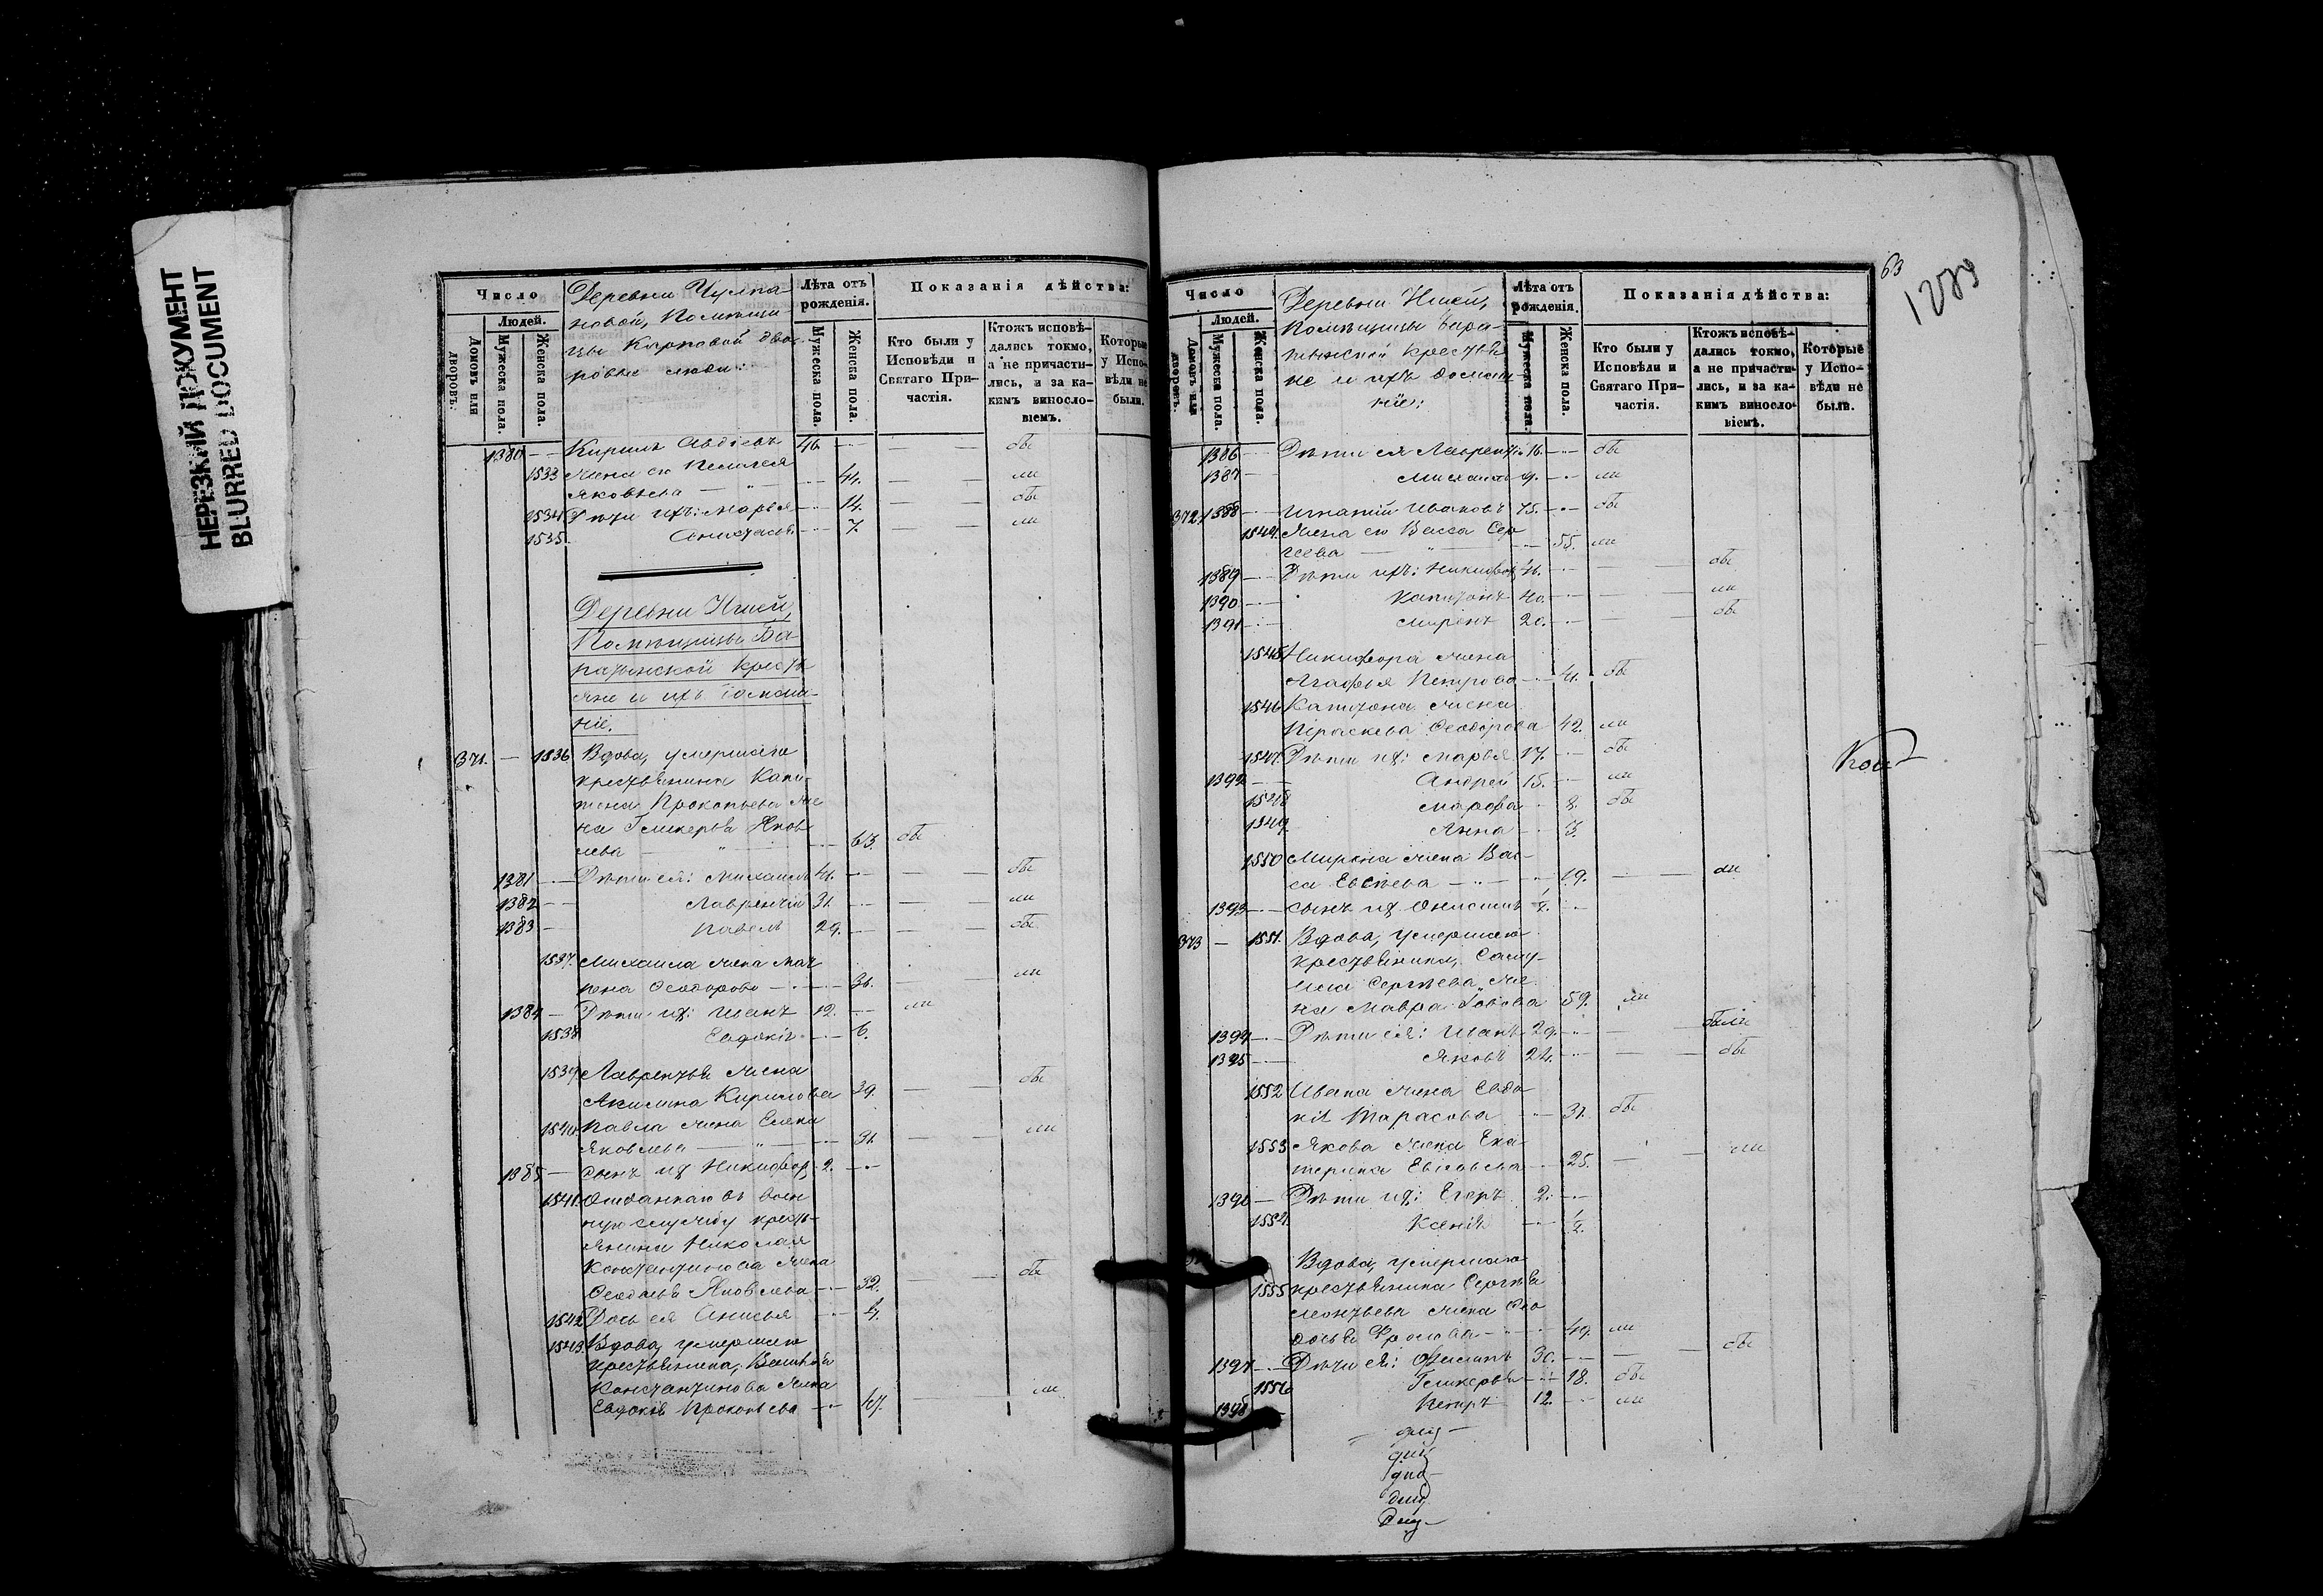 НЕРЕЗКИЙ ДОКУМЕНТ
BLURRED DOCUMENT
Число
Людей.
Домовъ или дворовъ.
Мужеска пола.
Женска пола.
Деревни Чулпа-
новой, Помѣщи-
цы Карповой дво-
ровые люди:
Лѣта отъ рожденія.
Мужеска пола.
Женска пола.
Показанія дѣйства:
Кто были у Исповѣди и Святаго При-частія.
Ктожъ исповѣ-дались токмо, а не причасти-лись, и за ка-кимъ винословіемъ.
Которые у Испо-вѣди не были.
1380 Кирилъ Авдіевъ 46. бы
1533 Жена его Пелагея
Яковлева 44. ли
1534 Дѣти ихъ: Марья 14. бы
1535. Анастасія 7. ли
Деревни
Помѣщицы Ба-
кресть
яне и ихъ домаш-
ніе.
371. 1536 Вдова, умершаго
крестьянина Капи-
тона Прокопьева же
на Гликерья Яков
лева 63. бы
1381 Дѣти ея: Михаилъ 41. бы
1382 Лаврентій 31. ли
1383 Павелъ 29. бы
1537. Михаила жена Мат
рена Ѳеодорова 36. ли
1384 Дѣти их: Иванъ 12. ли
1538 Евдокія 6.
1539 Лаврентья жена
Акилина Кирилова 29. бы
1540. Павла жена Елена
Яковлева 31. ли
1385 Сынъ их Никифоръ 2.
1541. Отданнаго въ воен
ную службу кресть-
янина Николая
Константинова жена
Яковлева 32. бы
1542 Дочь ея Анисья
1543. Вдова, умершаго
крестьянина,
Константинова жена
Евдокія Прокопьева 67. ли
63
1289
Число
Людей.
Домовъ или дворовъ.
Мужеска пола.
Женска пола.
Деревни
Помѣщицы Бара-
крестья
не и ихъ домаш-
ніе:
Лѣта отъ рожденія.
Мужеска пола.
Женска пола.
Показанія дѣйства:
Кто были у Исповѣди и Святаго При-частія.
Ктожъ исповѣ-дались токмо, а не причасти-лись, и за ка-кимъ винословіемъ.
Которые у Испо-вѣди не были.
1386 Дѣти ея Лаврентій 16. бы
1387 Михаилъ 9. ли
372. 1388 Игнатій Ивановъ 75. бы
1544. Жена его Васса Сер
геева 55. ли
1389 Дѣти ихъ: Никифоръ 46. бы
1390 Капитонъ 40. ли
1391 Миронъ 20. бы
1545. Никифора жена
Агафья Петрова 41. бы
1546 Капитона жена
Параскева Ѳеодорова 42. ли
1547. Дѣти их: Марья 17. бы
1392 Андрей 15. ли
1548 Марфа 8. бы
1549 Анна 3.
1550 Мирона жена Вас-
са Евсѣева 19. ли
1393 Сынъ их Онисимъ
373 1551. Вдова, умершаго
крестьянина, Саму-
ила Сергѣева же-
на Мавра 59. ли
1394 Дѣти ея: Иванъ 29. были
1395 Яковъ 24. бы
1552 Ивана жена Евдо
кія Тарасова 31. бы
1553 Якова жена Ека-
терина 25. ли
1396 Дѣти их: Егоръ 2.
1554. Ксенія
Вдова, умершаго
1555 крестьянина Сергѣя
Леонтьева жена Ѳео
досья Фролова 49. ли
1397 Дѣти ея: 30. бы
1556 Гликерья 18. бы
1398 Петръ 12. ли